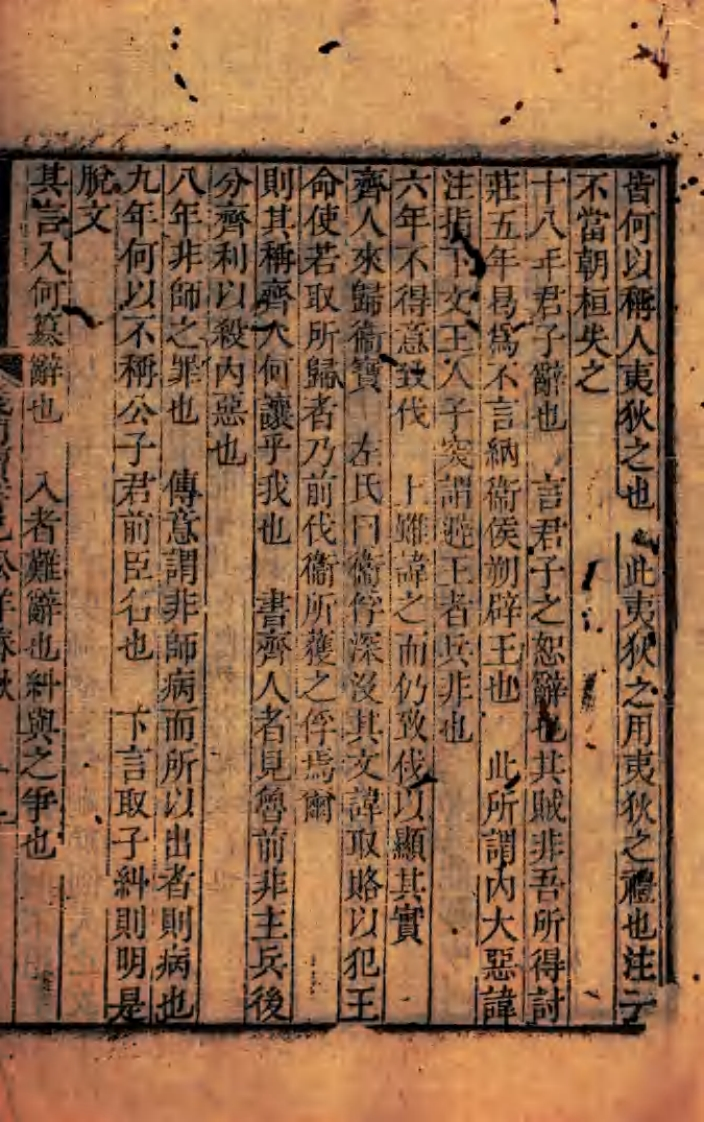 皆何以稱人夷狄之也　此夷狄之用夷狄之禮也注云
不當朝桓失之
十八年君子辭也　言君子之恕辭也其賊非吾所得討
莊五年曷爲不言納衞侯朔辟王也　此所謂内大惡諱
注指下文王人子突謂避王者兵非也
六年不得意致伐　上雖諱之而仍致伐以顯其實
齊人來歸衞寶　左氏曰衞俘深没其文諱取賂以犯王
命使若取所歸者乃前伐衞所獲之俘焉爾
則其稱齊人何讓乎我也　書齊人者見魯前非主兵後
分齊利以殺内惡也
八年非師之罪也　傳意謂非師病而所以出者則病也
九年何以不稱公子君前臣名也　下言取子糾則明是
脫文
其言入何篡辭也　入者難辭也糾與之爭也
公羊春秋